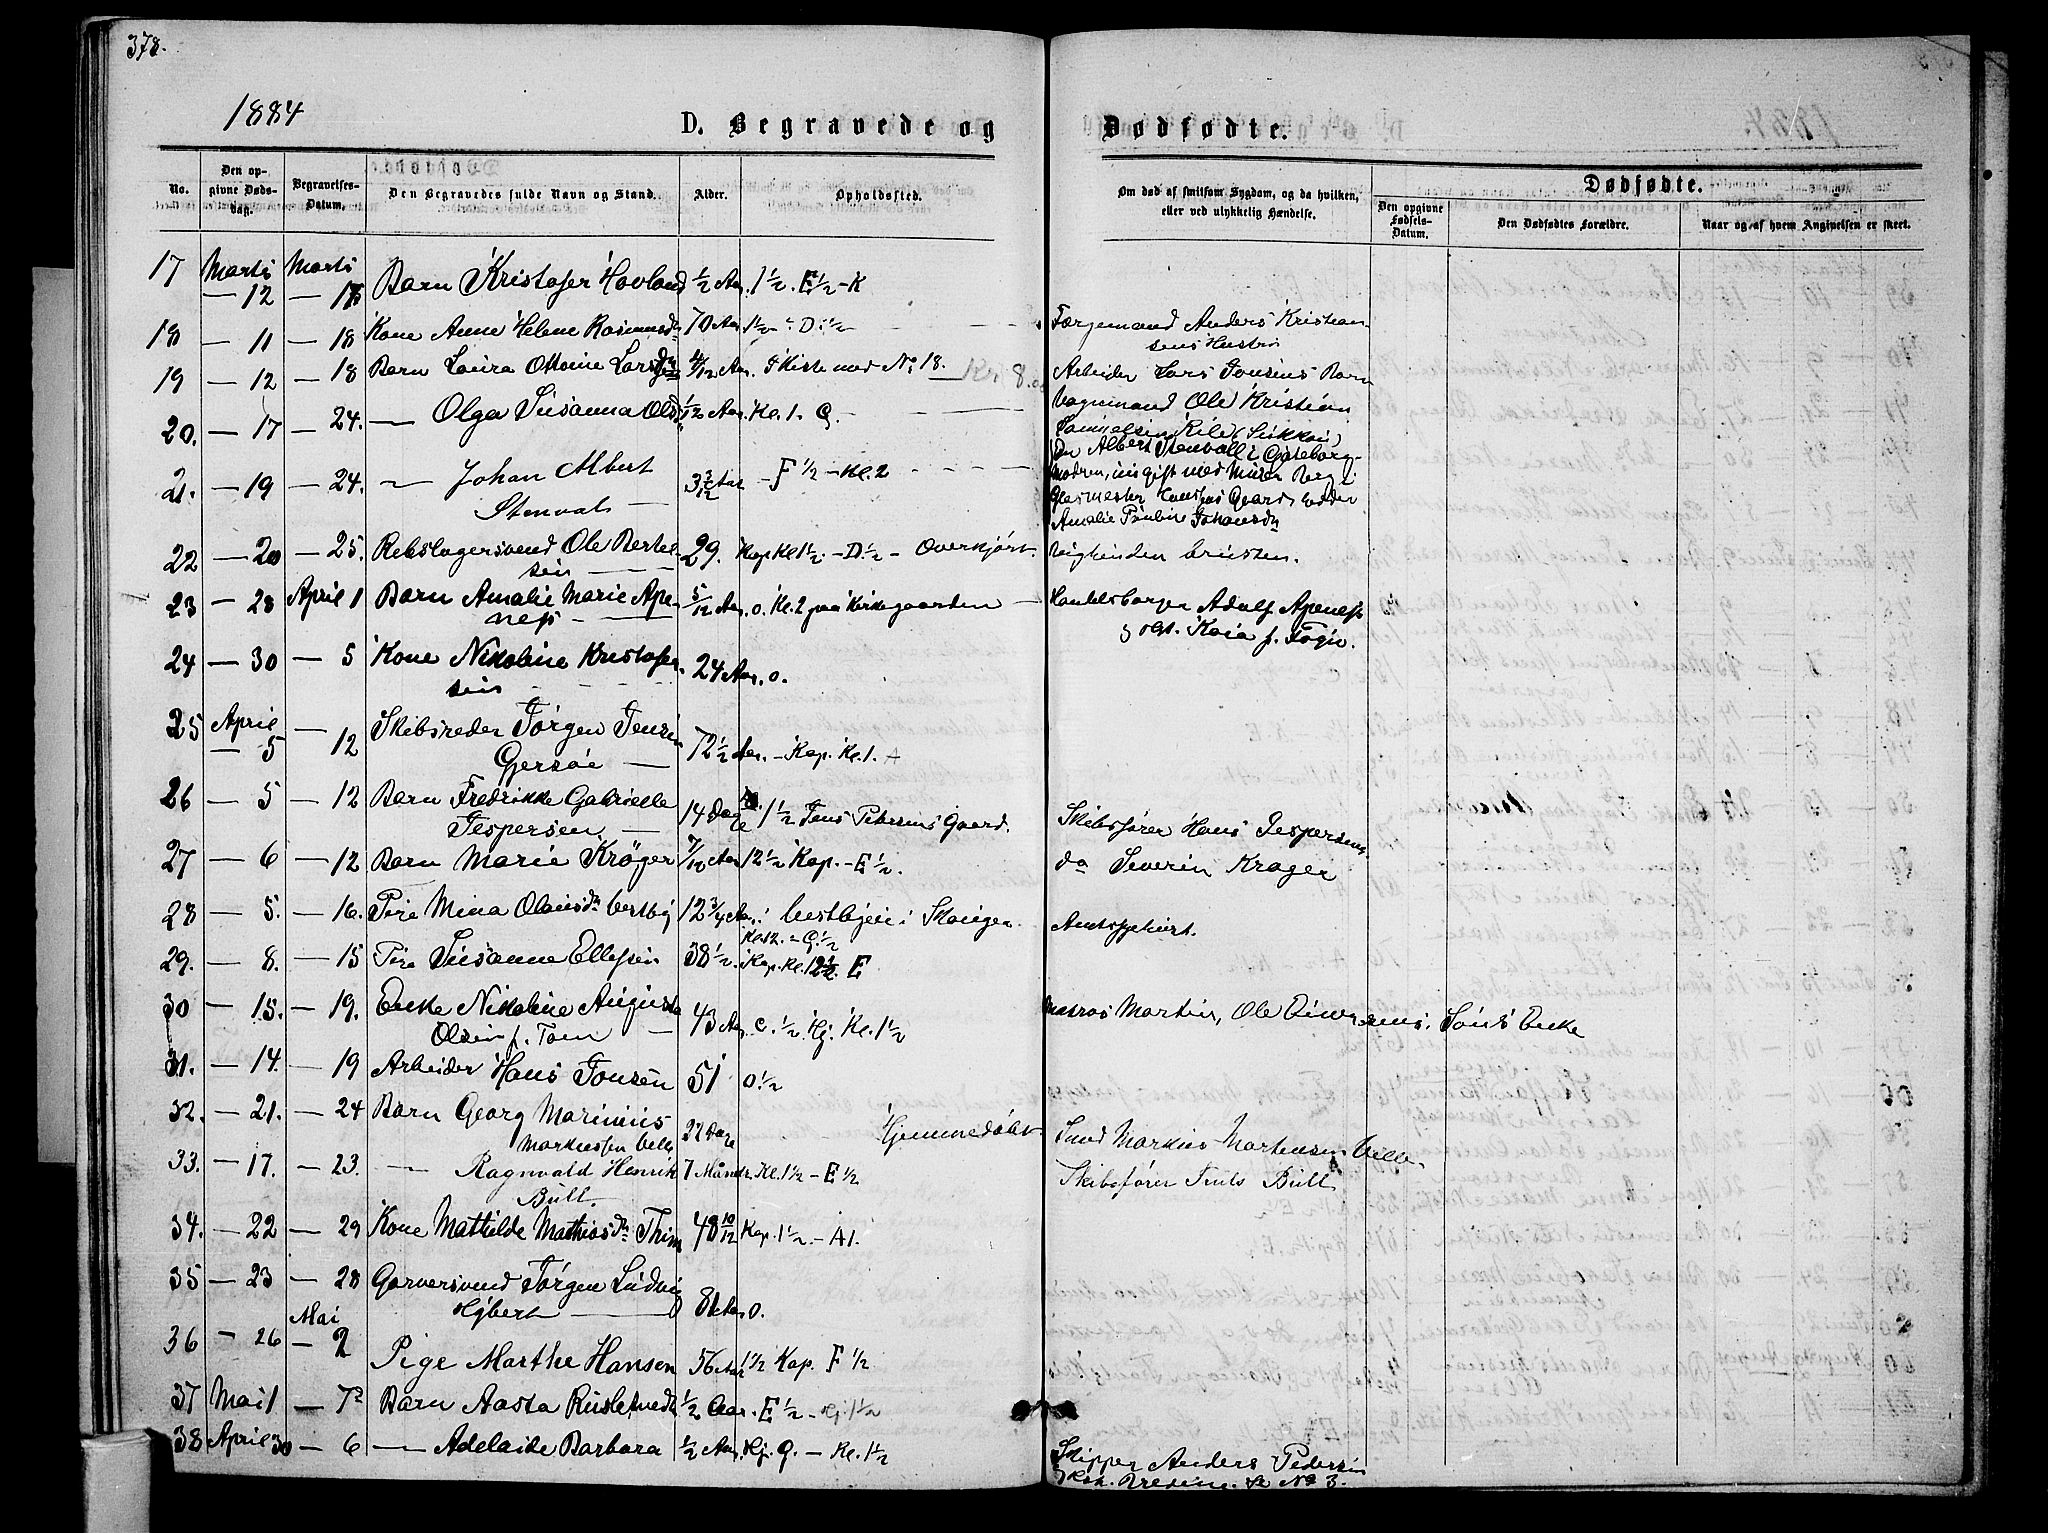 378.
1884
D. Begravede og Dødfødte.
No.
Den opgivne Dødsdag.
Begravelses-Datum.
Den Begravedes fulde Navn og Stand.
Alder.
Opholdssted.
Om død af smitsom Sygdom, og da hvilken, eller ved ulykkelig Hændelse.
Dødfødte.
Den opgivne Fødsels-Datum.
Den Dødfødtes Forældre.
Naar og af hvem Angivelsen er skeet.
17 Marts Marts
— 12 — 18 Barn Kristofer Hovland ½ Aar. 1½. E½ - K
18 — 11 — 18 Kone Anne Helene Rasmusdr 70 Aar 1½ - D.½ Færgemand Anders Kristian
sens Hustru
19 — 12 — 18 Barn Laura Othine Larsdr 4/12 Aar. I Kiste med No 18. Kr. 8. Arbeider Lars Jonsens Barn
20. — 17 — 24. — Olga Susanna Olsdr 1/12 Aar. Kl. 1. G. Vognmand Ole Kristian
Samuelsen Kile
21. — 19 — 24. — Johan Albert 3 3/12 Aar - F ½ - Kl. 2 Albert Stenvall i Gøteborg-
Stenval — Modren, nu gift med Murer Berg i
Glasmester Gaard, født
Amalie Pauline Johansdr
22 — 20 — 25. Rebslagersvend Ole Bertel 29. Kap. Kl 1½. - D.½ - Overkjørt
sen —
23 — 28 April 1 Barn Amalie Marie Ape- 5/12 Aar. o. Kl. 2 paa Kirkegaarden — Handelsborger Adolf Apeness
ness — Kaia f.
24 — 30 — 5 Kone Nikoline Kristofer 24 Aar. o.
sen
25 April — 12 Skibsreder Jørgen Jensen 72½ Aar. - Kap. Kl. 1. A
— 5 Gjersøe —
26 — 5 — 12 Barn Fredrikke Gabrielle 14 Dage 1½ Jens Petersens Gaard. Skibsfører Hans Jespersens
Jespersen —
27 — 6 — 12 Barn Marie Krøger 7/12 Aar 12½ Kap. - E½. do Severin Krøger
28 — 5. — 16. Pige Mina Olausdr Vestby 12¾ Aar.
Amtssygehuset.
29. — 8. — 15 Pige Susanne Ellefsen 38½. Kap. Kl. 12½. E
30 — 15. — 19. Enke Nikoline Augusta 43 Aar. C. ½. Hj. Kl. 1½ Matros Martin, Ole Sons Enke
Olsen f. Tom —
31. — 14. — 19 Arbeider Hans Jonsen 51 o ½
32. — 21. — 24 Barn Georg Marinius 22 Dage Hjemmedøbt. Smed Markus Martensen Velle.
Markussen Velle
33. — 17. — 23. — Ragnvald Henrik 7 Månd. Kl. 1½ - E½ Skibsfører Bull
Bull
34. — 22 — 29 Kone Mathilde Mathiasdr Thim 48 10/12 Kap. 1½. - A1.
35 — 23 — 28 Garversvend Jørgen Ludvig 81 Aar o.
Hybert —
Mai
36 — 26 — 2 Pige Marthe Hansen 56 Aar 1½ Kap. F ½
37 Mai 1 — 7 Barn Aasta ½ Aar. E½ - Hj. 1½
38 April 30 — 6 — Adelaide Barbara ½ Aar. Hj. G. - Kl. 1½ Skipper Anders Pedersen
No 3.